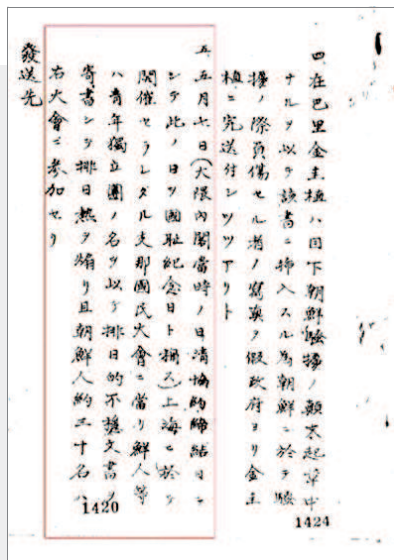 四、在巴里金奎植ハ目下朝鮮騷擾ノ顛末起草中
ナルヲ以テ該書ニ揷入スル爲朝鮮ニ於テ騷
擾ノ際負傷セル者ノ寫眞ヲ假政府ヨリ金奎
植ニ宛送付シツツアリト
五、五月七日(大隈內閣當時ノ日淸協約締結日ニ
シテ此ノ日ヲ國恥紀念日ト稱ス)上海ニ於テ
開催セラレタル支那國民大會ニ當リ鮮人等
ハ靑年獨立團ノ名ヲ以テ排日的不穩文書ヲ
寄書シ排日熱ヲ煽リ且朝鮮人約三十名ハ
右大會ニ參加セリ
發送先
1420
1424